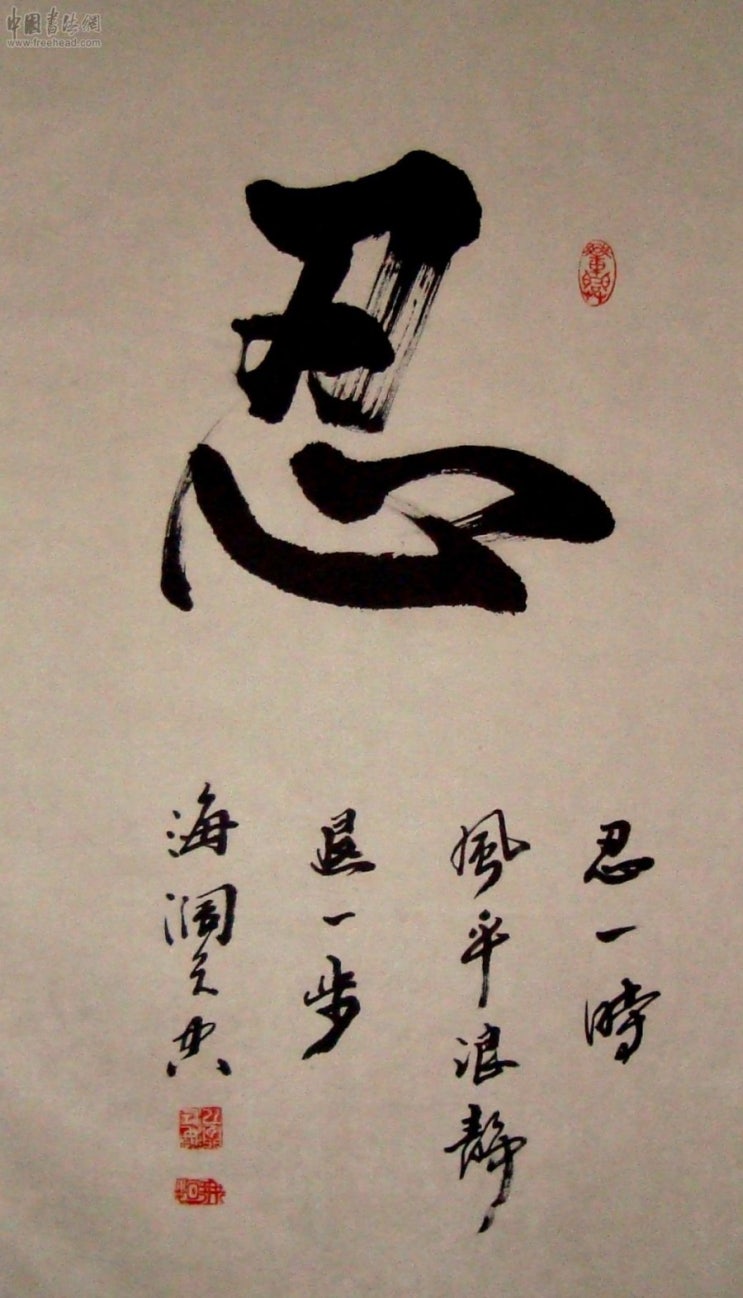 中国书法網
www.freehead.com
忍
忍一時
風平浪靜
退一步
海阔天空